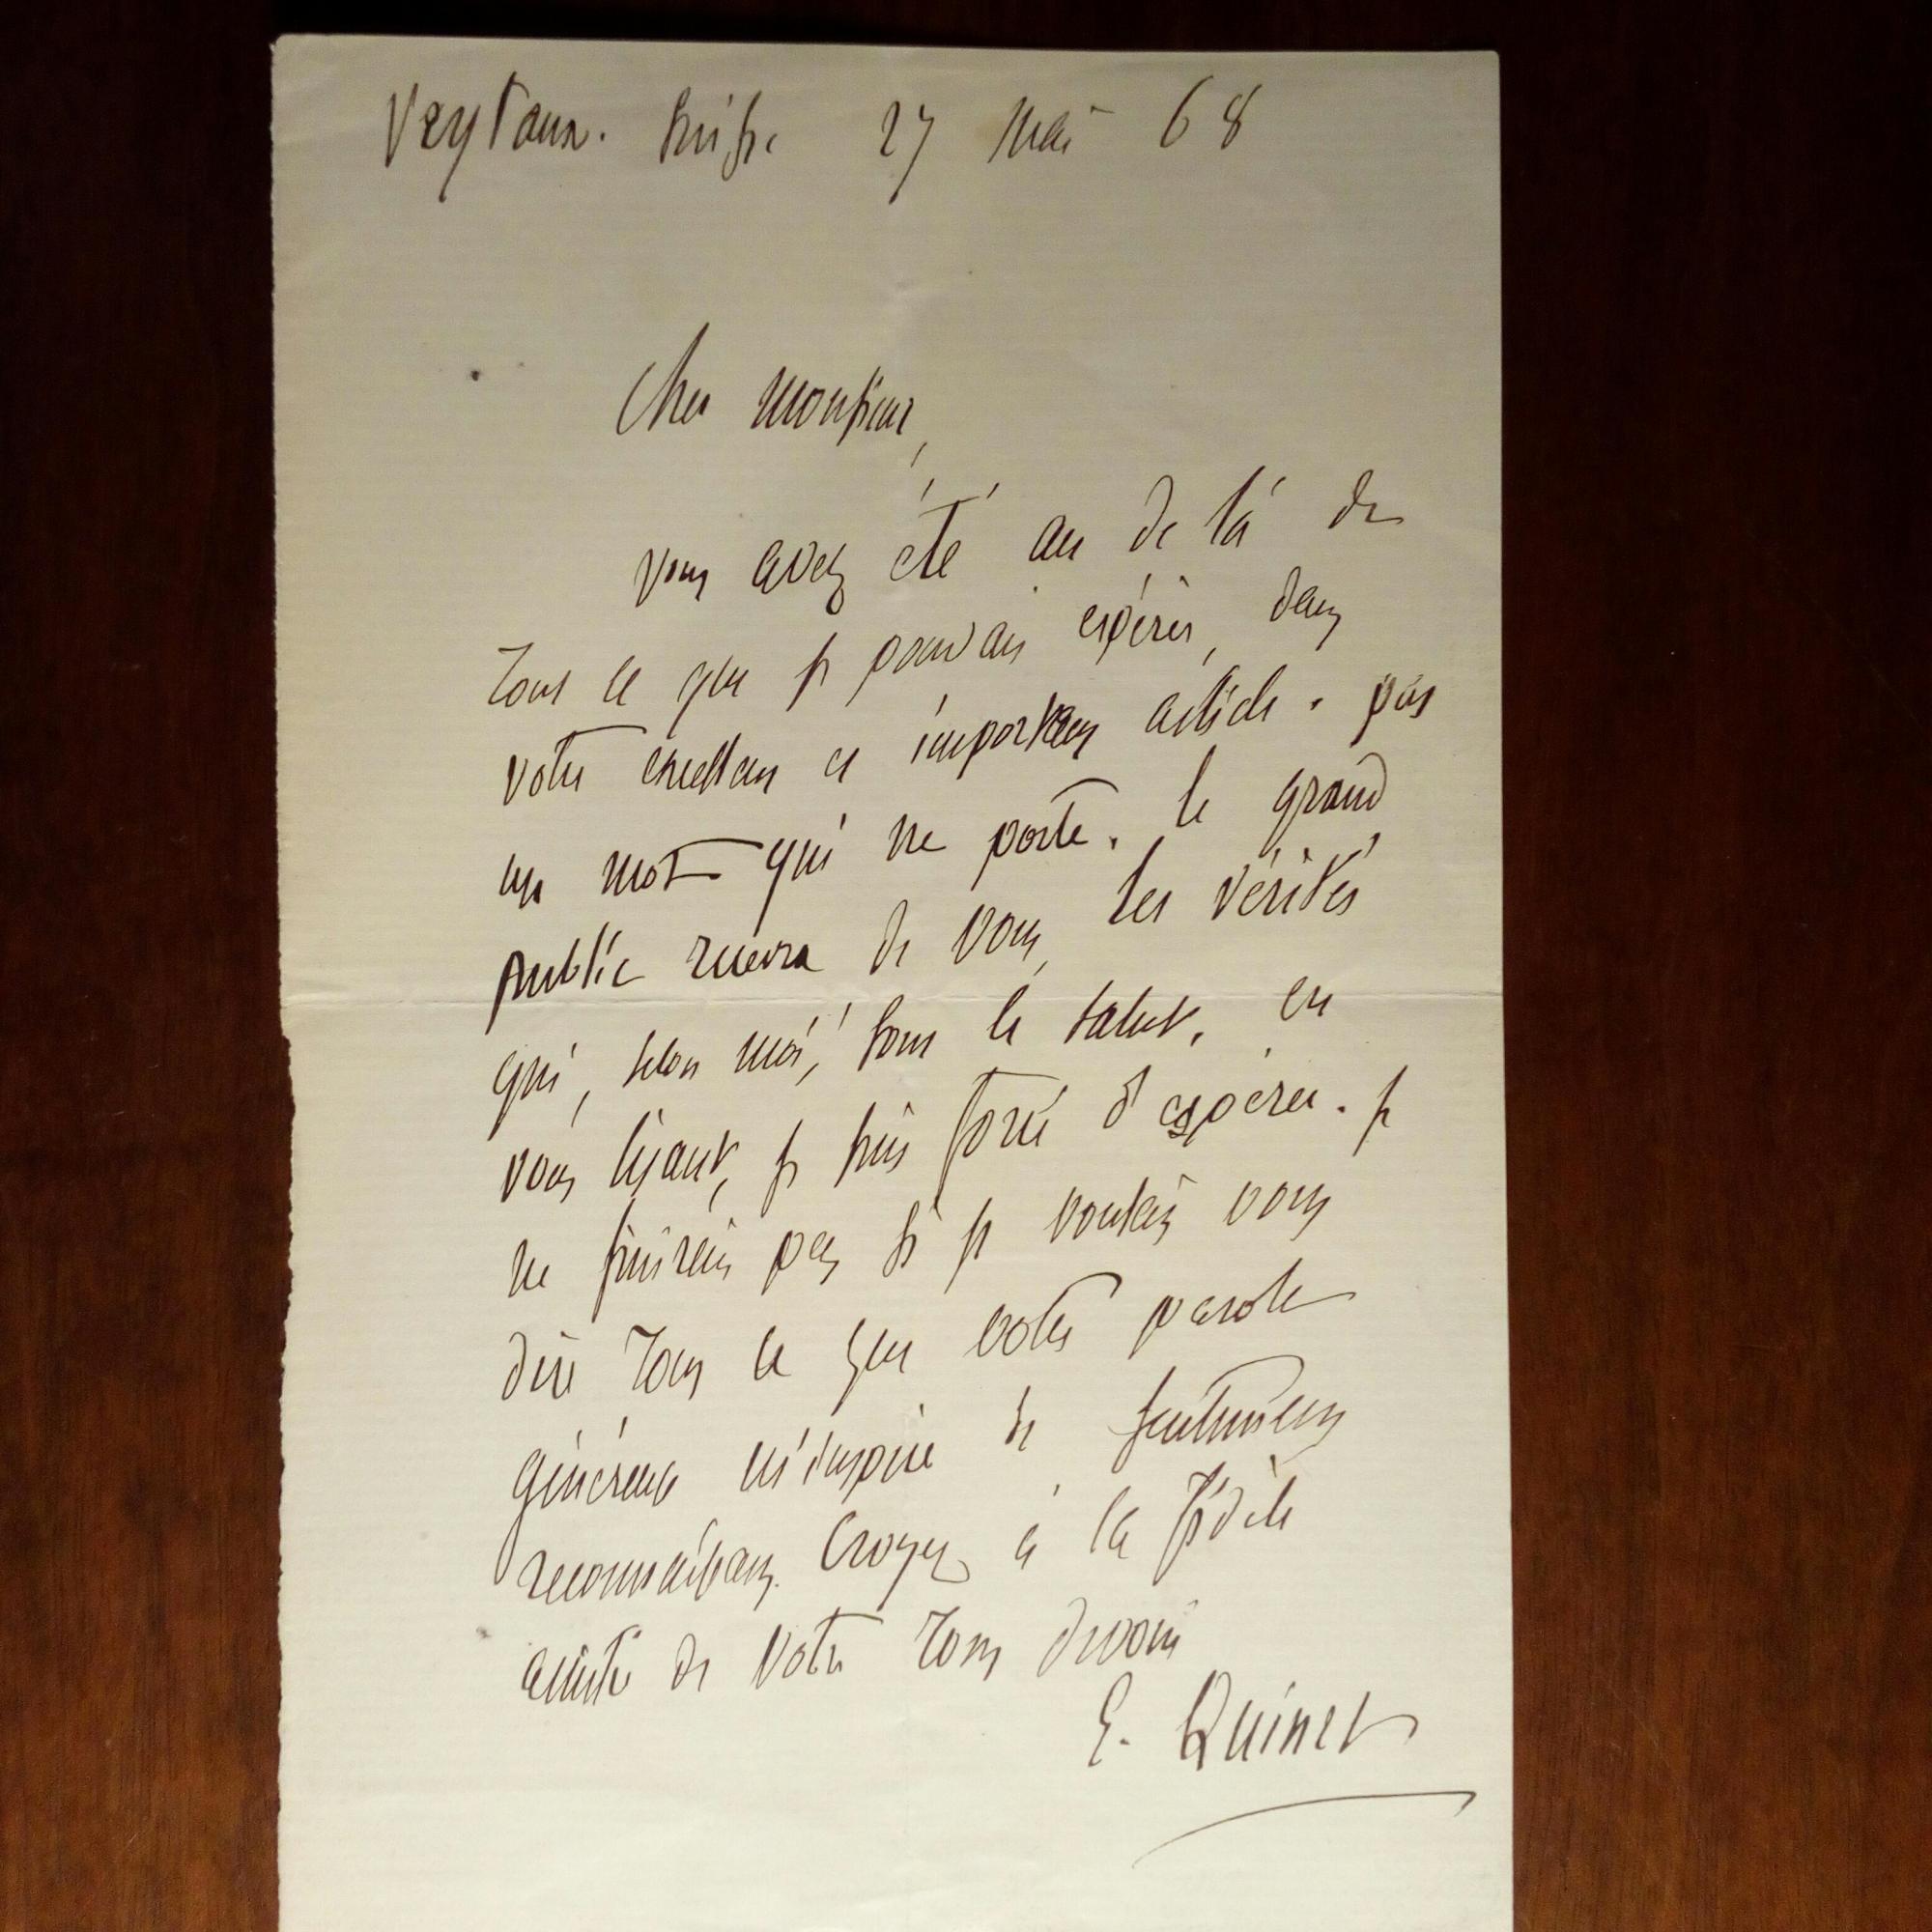 Veytaux. Suisse 27 Mai 68
Cher Monsieur,
vous avez été au de là de
tout ce que je pouvais espérer, dans
votre excellent et important article. pas
un mot qui ne porte. le grand
public recevra de vous, les vérités
qui, selon moi, sont le salut. en
vous lisant, je suis forcé d'espérer. je
ne finirais pas si je voulais vous
dire tout ce que votre parole
généreuse m'inspire de sentimens
reconnaissans. Croyez à la fidèle
amitié de votre tout dévoué
E. Quinet